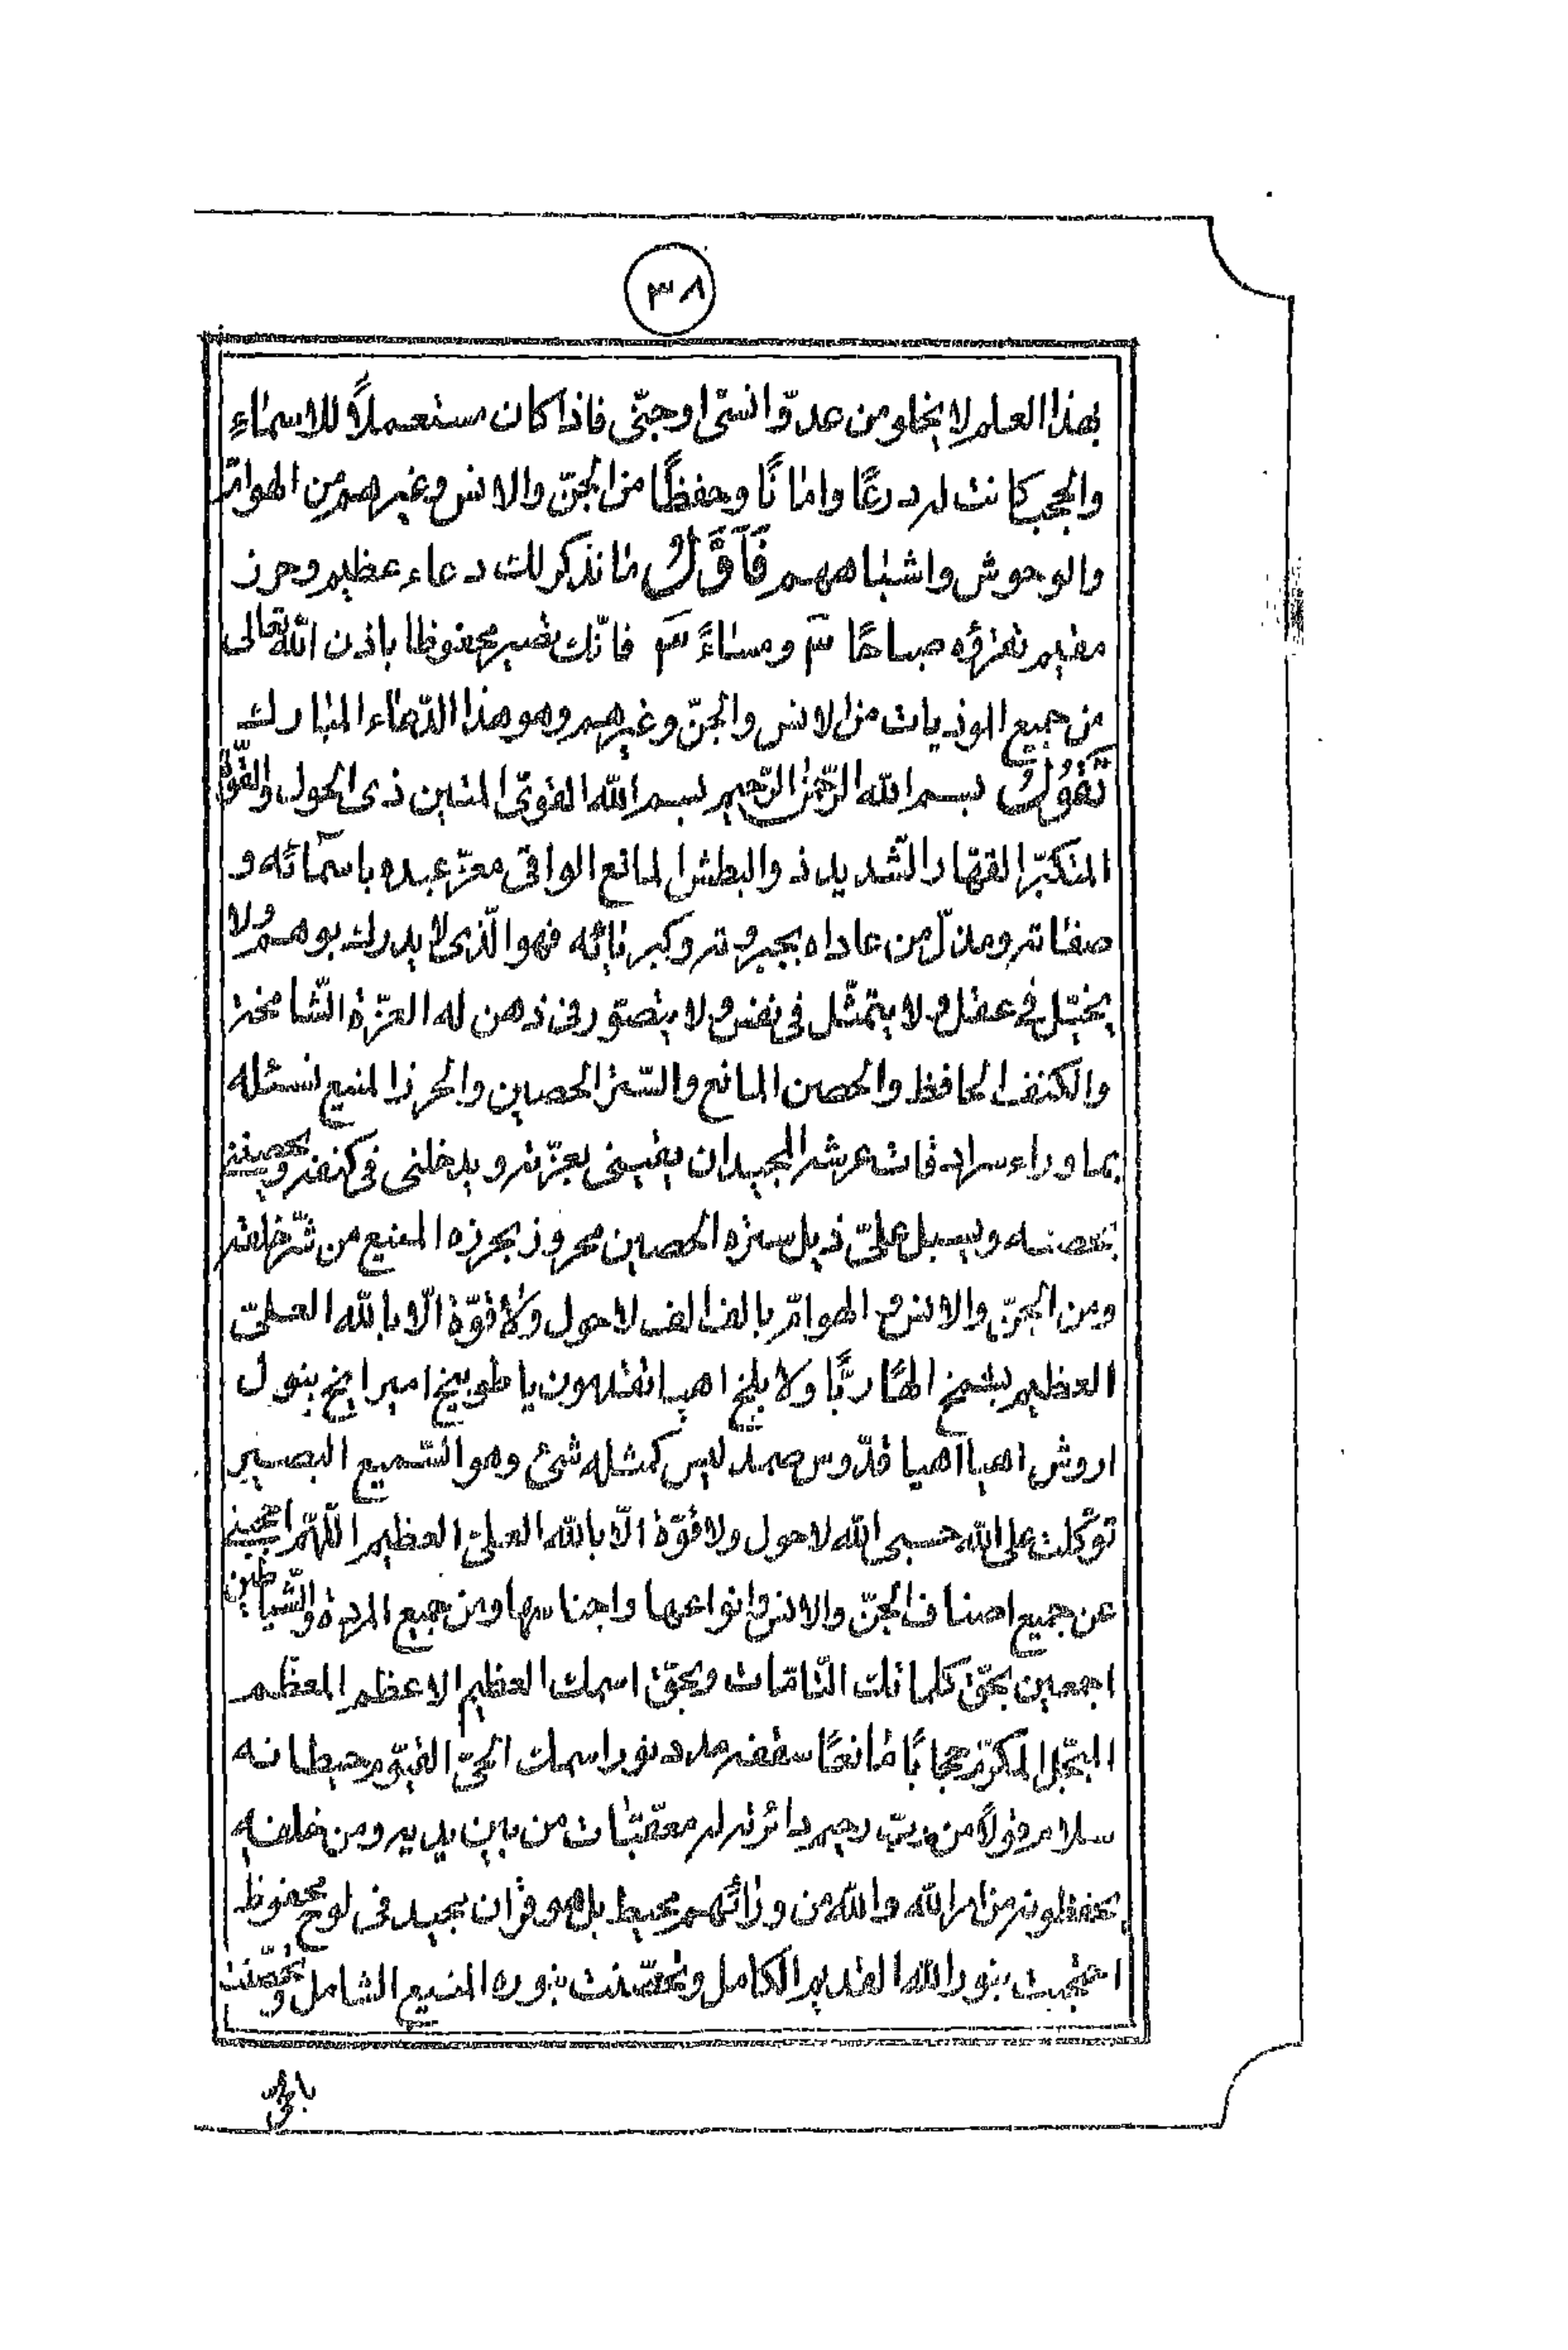 ٣٨
بهذا العلم لا يخلو من عدوّ انسىّ او جنّى فاذا كان مستعملاً للاسماءِ
والحجب كانت له درعًا وامانًا وحفظًا من الجنّ والانس وغيرهم من الهوامّ
والوحوش واشباههم فَاَوَّلُ ما نذكر لك دعاء عظيم وحرز
مقيم تقرؤه صباحًا ٣ ومساءً ٣ فانّك تصير محفوظا باذن الله تعالى
من جميع الموذيات من الانس والجنّ وغيرهم وهو هذا الدّعاء المبارك
تَقُولُ بسم الله الرّحمن الرّحيم بسم الله القوىّ المتين ذى الحول والقوّة
المتكبّر القهّار الشّديد ذو البطش المانع الواقى معزّ عبده باسمآئه و
صفاته ومذلّ من عاداه بجبروته وكبريائه فهو الّذى لا يدرك بوهم ولا
يخيّل فى عقل ولا يتمثّل فى نفس ولا يتصوّر فى ذهن له العزّة الشّامخة
والكنف الحافظ والحصن المانع والسّتر الحصين والحرز المنيع نسئله
بما وراء سرادقات عرشه المجيد ان يقينى بعزّته ويدخلنى فى كنفه ويحصننى
بحصنه ويسبل علىّ ذيل ستره الحصين محروز بحرزه المنيع من شرّ خلقه
ومن الجنّ والانس والهوامّ بالف الف لا حول ولا قوّة الّا بالله العلىّ
العظيم بشمخ الهًا ربًّا ولا بلخ اهيا انقلهون يا طوبيخ اميرايخ بنول
اروش اهيا اهيا قدّوس صمد ليس كمثله شئ وهو السّميع البصير
توكّلت على الله حسبى الله لا حول ولا قوّة الّا بالله العلىّ العظيم اللّهمّ احجبنى
عن جميع اصناف الجنّ والانس وانواعها واجناسها ومن جميع المردة والشّياطين
اجمعين بحقّ كلماتك التّامّات وبحقّ اسمك العظيم الاعظم المعظّم
المبجّل المكرّم حجابًا مانعًا سقفه مدد نور اسمك الحىّ القيّوم حيطانه
سلام قولاً من ربّ رحيم دائرته له معقّبات من بين يديه ومن خلفه
يحفظونه من امر الله والله من ورائهم محيط بل هو قرآن مجيد فى لوح محفوظ
احتجبت بنور الله القديم الكامل وتحصّنت بنوره المنيع الشامل وتحصّنت